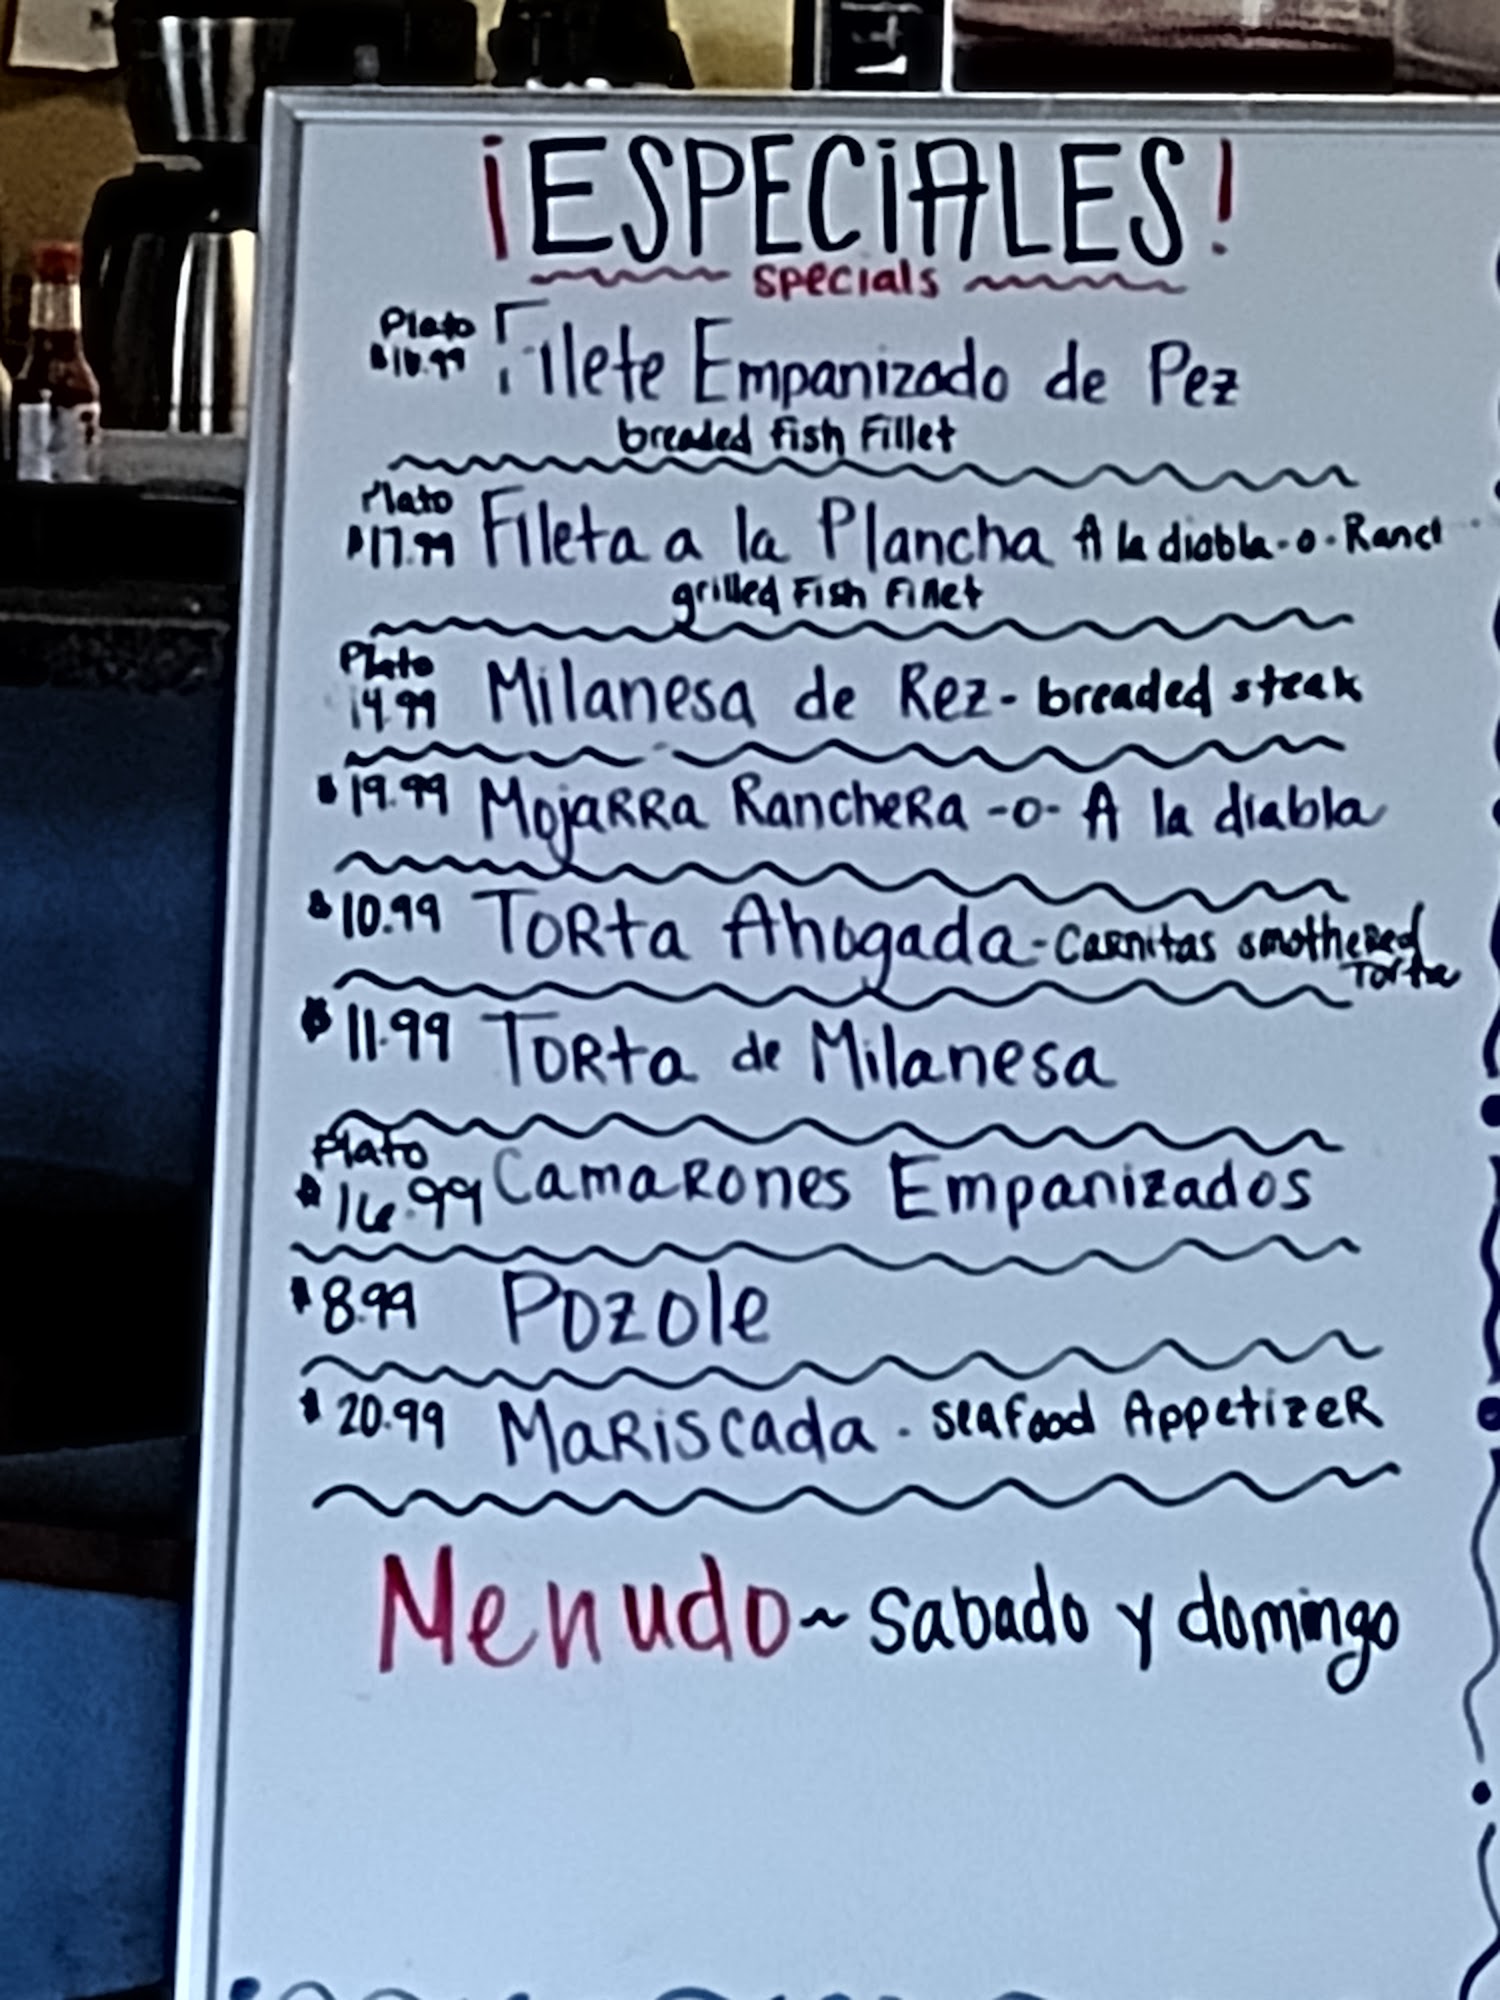 ¡ESPECiALES!
specials
Plato
Filete Empanizado de Pez
breaded fish Fillet
Plato
$17.99 Fileta a la Plancha A la diabla-o-Ranch
grilled Fish Fillet
Plato
14.99 Milanesa de Rez- breaded steak
$19.99 MojaRRa RancheRa -o- A la diabla
$10.99 ToRta Ahogada-Carnitas smotheRed
Torta
$11.99 ToRta de Milanesa
Plato
$16.99 CamaRones Empanizados
$8.99 Pozole
$20.99 MaRiscada. seafood AppetizeR
Menudo~ Sabado y domingo